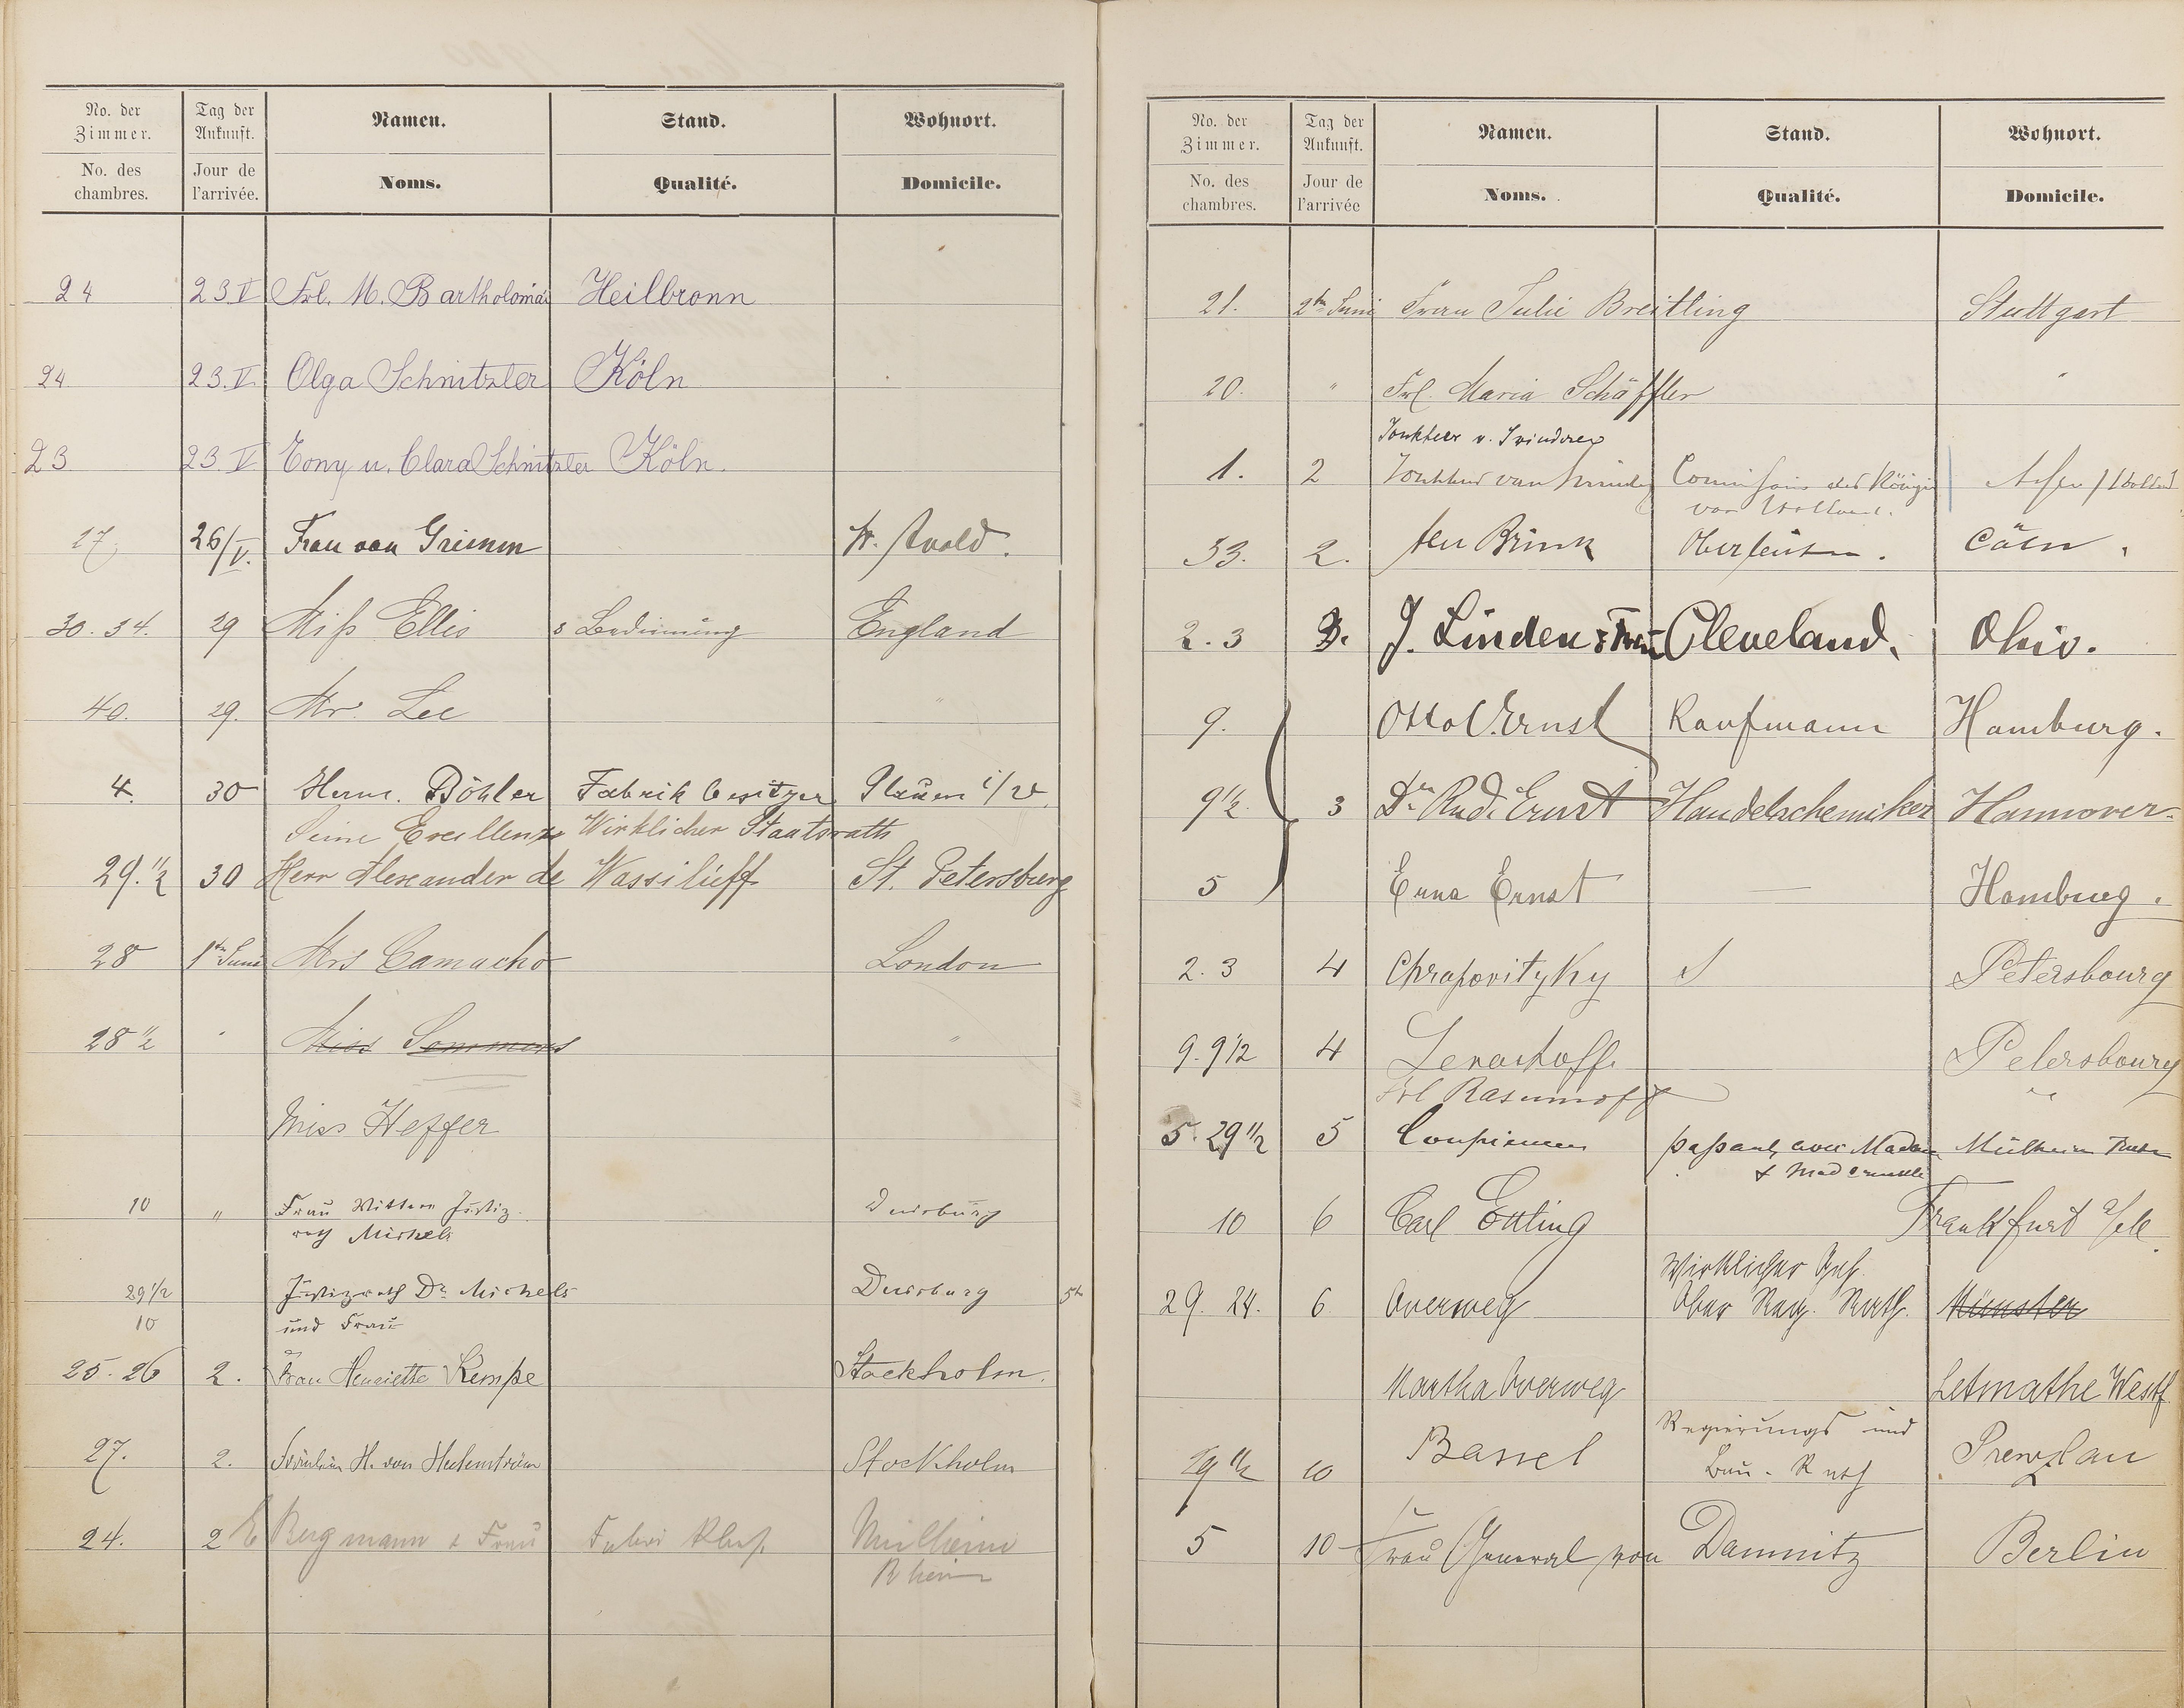 No. der Zimmer. Tag der Ankunft. Namen. Stand. Wohnort.
No. des chambres. Jour de l'arrivée. Noms. Qualité. Domicile.
24 23.V Frl. M. Bartholomäi Heilbronn
24 23.V. Olga Schnitzler Köln
23 23.V Tony u. Clara Schnitzler Köln.
27 26/V. Frau von Grimm St. Avold.
30. 34. 29 Miß Ellis & Bedienung England
40. 29. Mr. Lee "
4. 30 Herm. Böhler Fabrikbesitzer Plauen i/V.
Seine Excellenz Wirklicher Staatsrath
29. 1/2 30 Herr Alexander de Wassilieff St. Petersburg
28 1ten Juni Mrs Camacho London
28 1/2 " Miss Sommers "
Miss Heffer
10 " Frau Wittwe Justiz-
rath Michels Duisburg
29 1/2 Justizrath Dr. Michels Duisburg
10 und Frau
25. 26 2. Frau Henriette Kempe Stockholm.
27. 2. Fräulein H. von Stockholm
24. 2 E Bergmann & Frau Mülheim
Rhein
No. der Zimmer. Tag der Ankunft. Namen. Stand. Wohnort.
No. des chambres. Jour de l'arrivée Noms. Qualité. Domicile.
21. 2ten Juni Frau Julie Breitling Stuttgart
20. " Frl. Maria Schäffler "
Jonkheer v. Swinderen
1. 2 Jonkheer van
von Holland.
33. 2. ten Brink Cöln.
2. 3 3. J. Linden & Frau Cleveland. Ohio.
9. Otto C. Ernst Kaufmann Hamburg.
9 1/2. 3 Dr. Rud. Ernst Handelschemiker Hannover.
5 Erna Ernst — Hamburg.
2. 3 4 Chrapovitzky Petersbourg
9. 9 1/2 4 Petersbourg
Frl Rasumoff "
5. 29 1/2 5 Mülheim Ruhr
10 6 Carl Ettling Frankfurt a/M.
Wirklicher Geh.
29. 24. 6. Overweg Ober Reg. Rath. Münster
Martha Overweg Letmathe Westf.
Regierungs und
29 1/2 10 Bassel Bau-Rath Prenzlau
5 10 Frau General von Damnitz Berlin